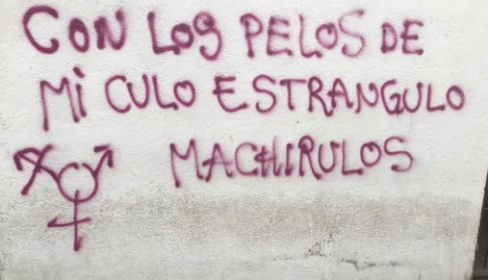 CON LOS PELOS DE
Mi CULO ESTRANGULO
MACHIRULOS